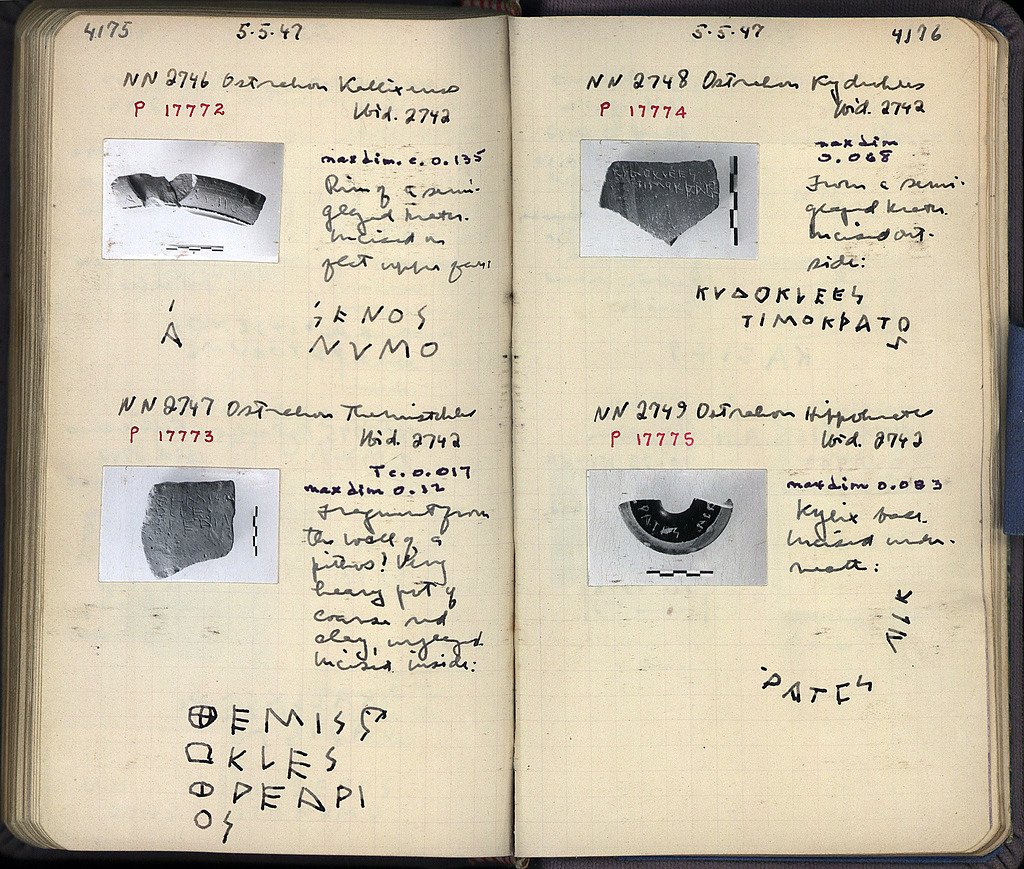 4175
5·5·47
NN 2746 Ostrakon Kallixenos
P 17772
Ibid. 2742
max dim. c. 0.135
Rim of a semi-
glazed krater.
Incised on
flat upper face:
Α
ΞΕΝΟΣ
ΝVΜΟ
NN 2747 Ostrakon Themistokles
P 17773
Ibid. 2742
T c. 0.017
max dim 0.12
Fragment from
the wall of a
pithos! Very
heavy pot of
coarse red
clay, unglazed
Incised inside:
ΘΕΜΙΣ
ΚLΕΣ
ΦΡΕΑΡΙ
ΟΣ
5·5·47
4176
NN 2748 Ostrakon Kydrokles
P 17774
Ibid. 2742
max dim
0.068
From a semi-
glazed krater.
Incised out-
side:
ΚVΔΟΚLΕΕΣ
ΤΙΜΟΚΡΑΤΟ
Σ
NN 2749 Ostrakon Hippokrates
P 17775
Ibid. 2742
max dim 0.083
Kylix base.
Incised under-
neath:
ΡΑΤΕΣ